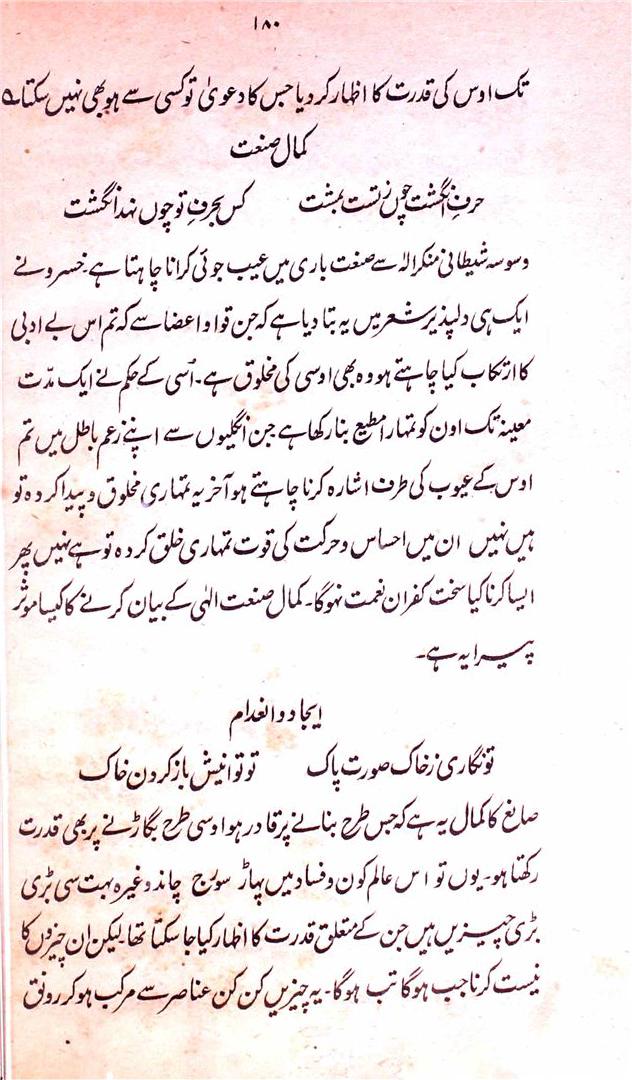 ۱۸۰
تک اوس کی قدرت کا اظہار کردیا جس کا دعویٰ تو کسی سے ہو بھی نہیں سکتا ہے
کمال صنعت
حرفِ انگشت چوں زتست بمشت کس بحرفِ تو چوں نہد انگشت
وسوسہ شیطانی منکر الٰہ سے صنعت باری میں عیب جوئی کرانا چاہتا ہے۔ خسرو نے
ایک ہی دلپذیر شعر میں یہ بتا دیا ہے کہ جن قوا و اعضا سے کہ تم اس بے ادبی
کا ارتکاب کیا چاہتے ہو وہ بھی اوسی کی مخلوق ہے۔ اُسی کے حکم نے ایک مدّت
معینہ تک اون کو تمہارا مطیع بنا رکھا ہے جن انگلیوں سے اپنے زعم باطل میں تم
اوس کے عیوب کی طرف اشارہ کرنا چاہتے ہو آخر یہ تمہاری مخلوق و پیدا کردہ تو
ہیں نہیں ان میں احساس و حرکت کی قوت تمہاری خلق کردہ تو ہے نہیں پھر
ایسا کرنا کیا سخت کفران نعمت نہوگا۔ کمال صنعت الٰہی کے بیان کرنے کا کیسا موثر
پیرایہ ہے۔
ایجاد و انعدام
تو نگاری ز خاک صورت پاک تو توانیش باز کردن خاک
صانع کا کمال یہ ہے کہ جس طرح بنانے پر قادر ہو اوسی طرح بگاڑنے پر بھی قدرت
رکھتا ہو۔ یوں تو اس عالم کون و فساد میں پہاڑ سورج چاند وغیرہ بہت سی بڑی
بڑی چیزیں ہیں جن کے متعلق قدرت کا اظہار کیا جا سکتا تھا۔ لیکن ان چیزوں کا
نیست کرنا جب ہوگا تب ہوگا۔ یہ چیزیں کن کن عناصر سے مرکب ہو کر رونق